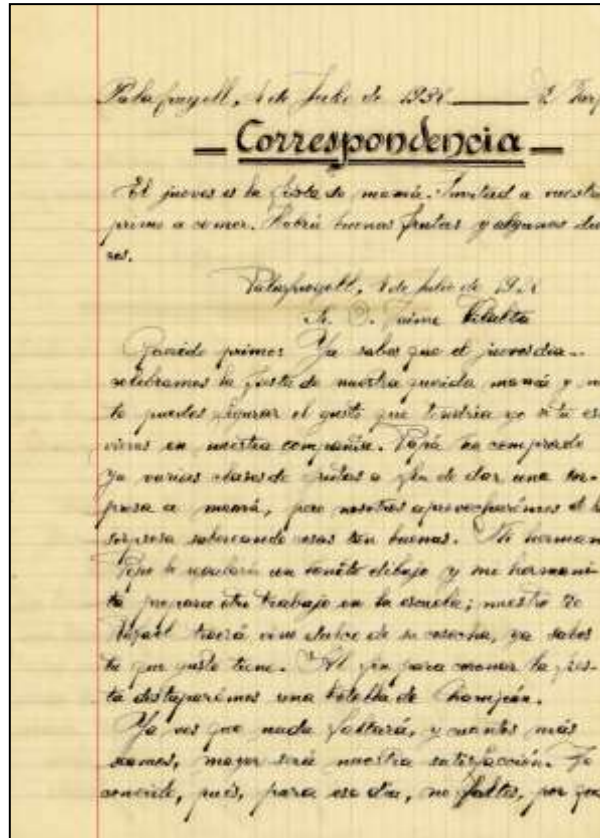 Palafrugell, 4 de Julio de 193
Correspondencia
El jueves es la fiesta de mamá. Invitad a vuestro
primo a comer. Habrá buenas frutas y algunos dul
ces.
Palafrugell, 4 de Julio de 19
Jaime
Querido primo: Ya sabes que el jueves día
celebramos la fiesta de nuestra querida mamá y
te puedes figurar el gusto que tendría yo si tu es
vieras en nuestra compañía. Papá ha comprado
ya varias clases de frutas a fin de dar una sor-
presa a mamá, pero nosotros aprovecharémos
sorpresa saboreando cosas tan buenas. Mi herman
Pepe le un dibujo y mi hermani-
ta prepara otro trabajo en la escuela; nuestro
Rafael traerá vino de su cosecha, ya sabes
tu que gusto tiene. Al fin para coronar la fies-
ta destaparémos una botella de
Ya ves que nada faltará, y cuantos más
seamos, mayor será nuestra satisfacción. Te
pués, para ese día, no faltes, por que